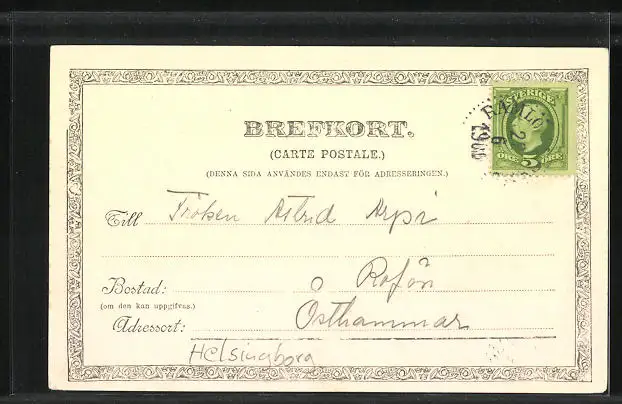 SVERIGE
RAMLÖ
1900
ÖRE 5 ÖRE
BREFKORT.
(CARTE POSTALE.)
(DENNA SIDA ANVÄNDES ENDAST FÖR ADRESSERINGEN.)
Till Fröken Astrid Arpi
Bostad: Rafön
(om den kan uppgifvas.)
Adressort: Östhammar
Helsingborg